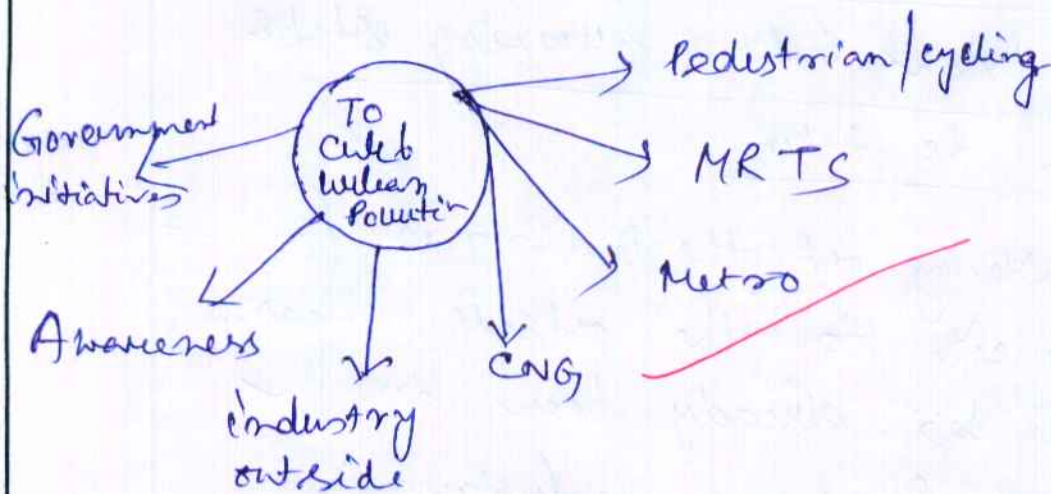 To
Curb
urban
Pollution
Pedestrian/cycling
MRTS
Metro
CNG
industry
outside
Awareness
Government
initiatives